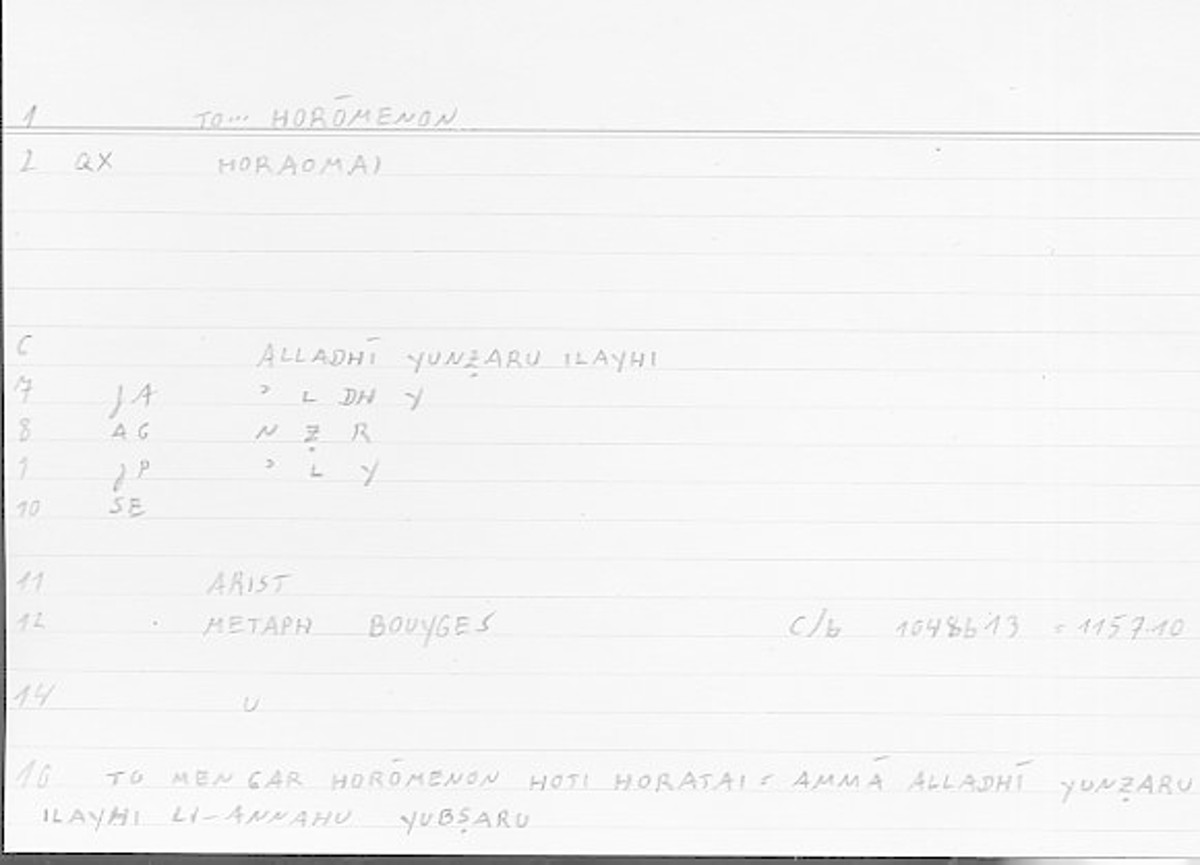 1 TO... HORŌMENON
2 QX HORAOMAI
6 ALLADHĪ YUNẒARU ILAYHI
7 JA ʾ L DH Y
8 AG N Ẓ R
9 JP ʾ L Y
10 SE
11 ARIST
12 . METAPH BOUYGES C/b 1048b13 = 1157.10
14 U
16 TO MEN GAR HORŌMENON HOTI HORATAI = AMMĀ ALLADHĪ YUNẒARU
ILAYHI LI-ANNAHU YUBṢARU